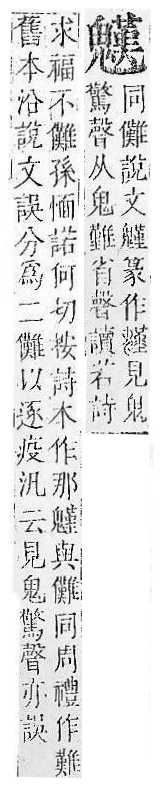 同儺說文篆作見鬼
驚聲从鬼難省聲讀若詩
求福不儺孫愐諾何切按詩本作那與儺同周禮作難
舊本沿說文誤分爲二儺以逐疫汎云見鬼驚聲亦誤